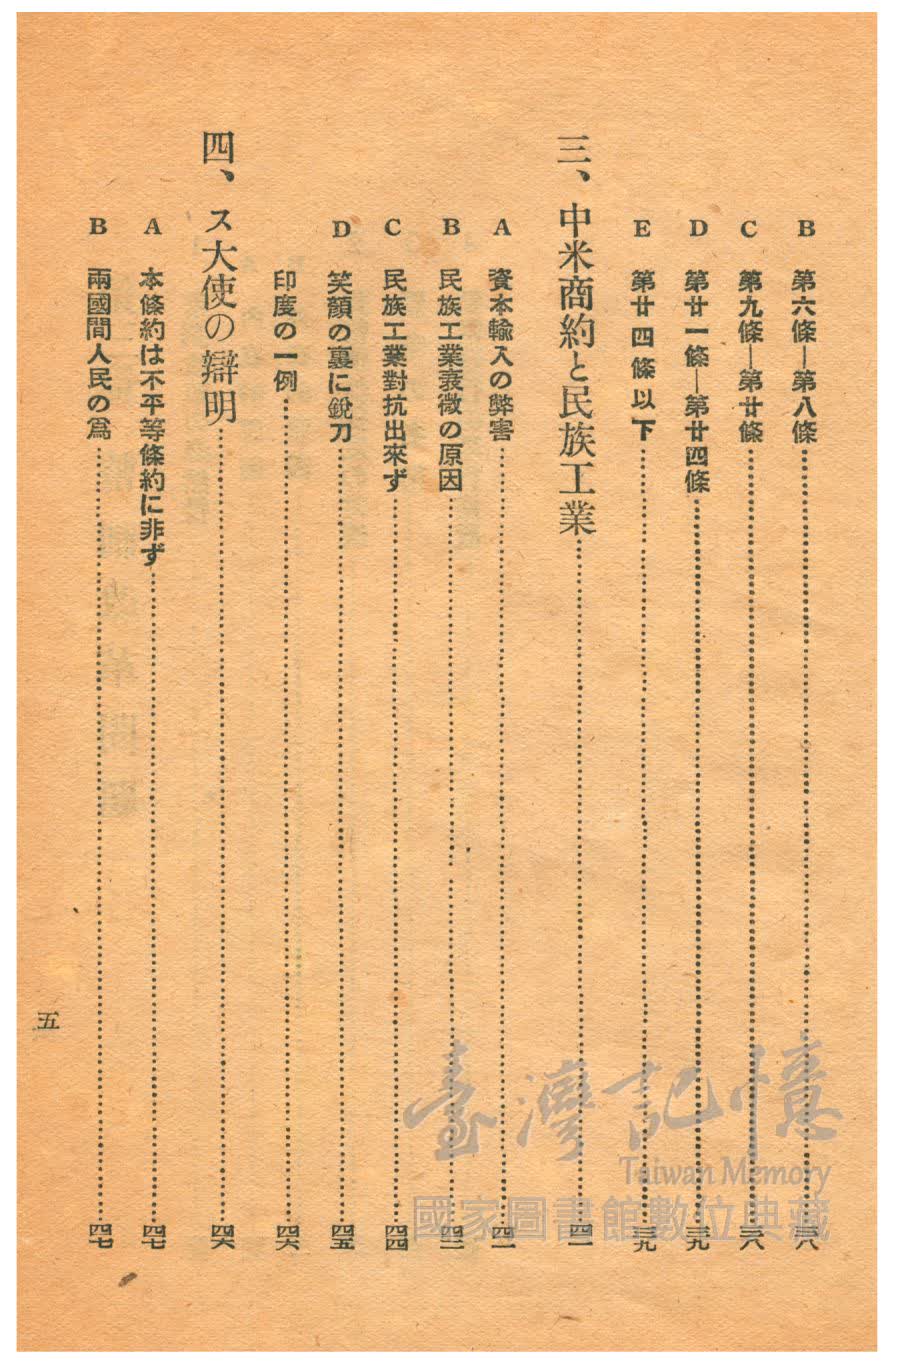 B 第六條—第八條……三八
C 第九條—第廿條……三八
D 第廿一條—第廿四條……三九
E 第廿四條以下……三九
三、中米商約と民族工業……
A 資本輸入の弊害……
B 民族工業衰微の原因……
C 民族工業對抗出來ず……四四
D 笑顔の裏に銳刀……四五
印度の一例……四六
四、ス大使の辯明……四六
A 本條約は不平等條約に非ず……四七
B 兩國間人民の爲……四七
五
臺灣記憶
Taiwan Memory
國家圖書館數位典藏